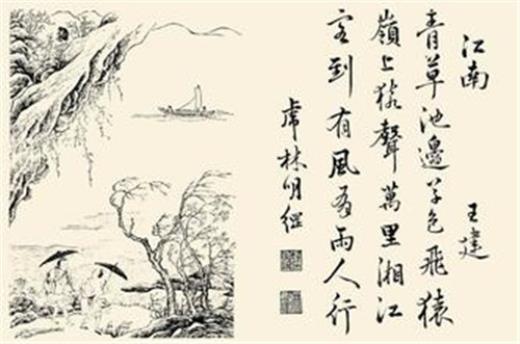 江南 王建
青草池邊草色飛猿
嶺上猿聲萬里湘江
客到有風有雨人行
虎林明